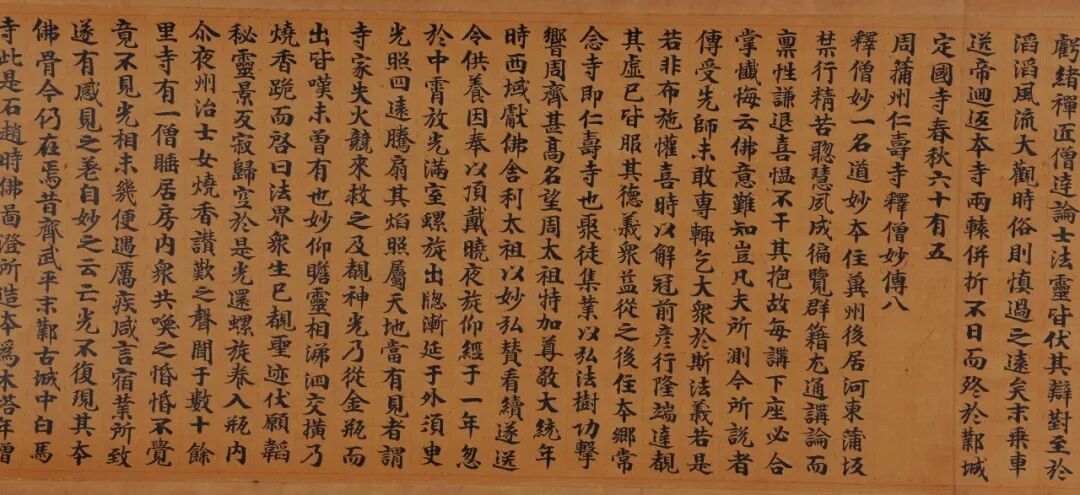 虧緒禪匠僧達論士法靈皆伏其辯對至於
滔滔風流大觀時俗則慎過之遠矣末乘車
送帝迴返本寺兩轅併折不日而終於鄴城
定國寺春秋六十有五
周蒲州仁壽寺釋僧妙傳八
釋僧妙一名道妙本住冀州後居河東蒲坂
禁行精苦聰慧夙成徧覽群籍尤通講論而
稟性謙退喜慍不干其抱故每講下座必合
掌懺悔云佛意難知豈凡夫所測今所說者
傳受先師未敢專輒乞大衆於斯法義若是
若非布施懽喜時以解冠前彥行隆端達覩
其虛已皆服其德義衆益從之後住本鄉常
念寺即仁壽寺也聚徒集業以弘法樹功擊
響周齊甚高名望周太祖特加尊敬大統年
時西域獻佛舍利太祖以妙弘賛看續遂送
令供養因奉以頂戴曉夜旋仰經于一年忽
於中霄放光滿室螺旋出牕漸延于外須臾
光照四遠騰扇其焰照屬天地當有見者謂
寺家失火競來救之及覩神光乃從金瓶而
出皆嘆未曾有也妙仰瞻靈相涕泗交橫乃
燒香跪而啓曰法界衆生已覩聖迹伏願韜
秘靈景反寂歸空於是光還螺旋卷入瓶內
尒夜州治士女燒香讚歎之聲聞于數十餘
里寺有一僧睡居房內衆共喚之惛惛不覺
竟不見光相未幾便遇厲疾咸言宿業所致
遂有感見之差自妙之云亡光不復現其本
佛骨今仍在焉昔齊武平末鄴古城中白馬
寺此是石趙時佛啚澄所造本爲木塔年